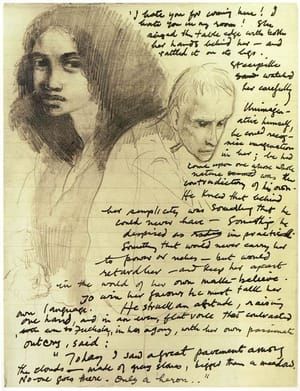 'I hate you for coming here! I
hate you in my room! She
seized the table edge with both
her hands behind her — and
rattled it on its legs.
Steerpike
watched
her carefully
Unimagin-
ative himself,
he could recog-
nise imagination
in her; he had
come upon one whose whole
nature was the
contradictory of his own
He knew that behind
her simplicity was something that he
could never have — Something he
despised as in practical
Something that would never carry her
to power or riches — but would
retard her — and keep her apart
in the world of her own make-believe.
To win her favour he must talk her
own language.
He struck an attitude, raising
one hand, and in an even flat voice that contrasted
even to Fuchsia, in her agony, with her own passionate
outcry, said:
"Today I saw a great pavement among
the clouds — made of grey stones, bigger than a meadow.
No-one goes there. Only a heron..."